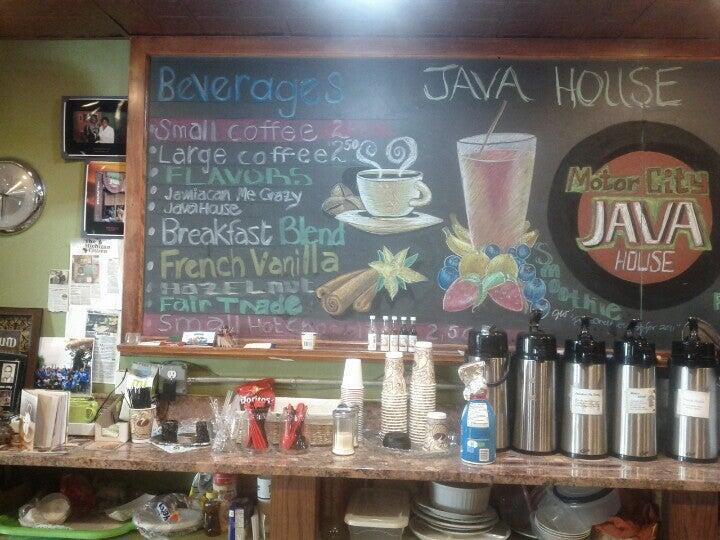 Beverages
JAVA HOUSE
Small coffee 2
Large coffee 2.50
FLAVORS
Jamiacan Me Crazy
Java House
Breakfast Blend
French Vanilla
HAZELNUT
Fair Trade
Small Hot
2.50
Smoothie
Motor City
JAVA
HOUSE
The Michigan Citizen
Doritos